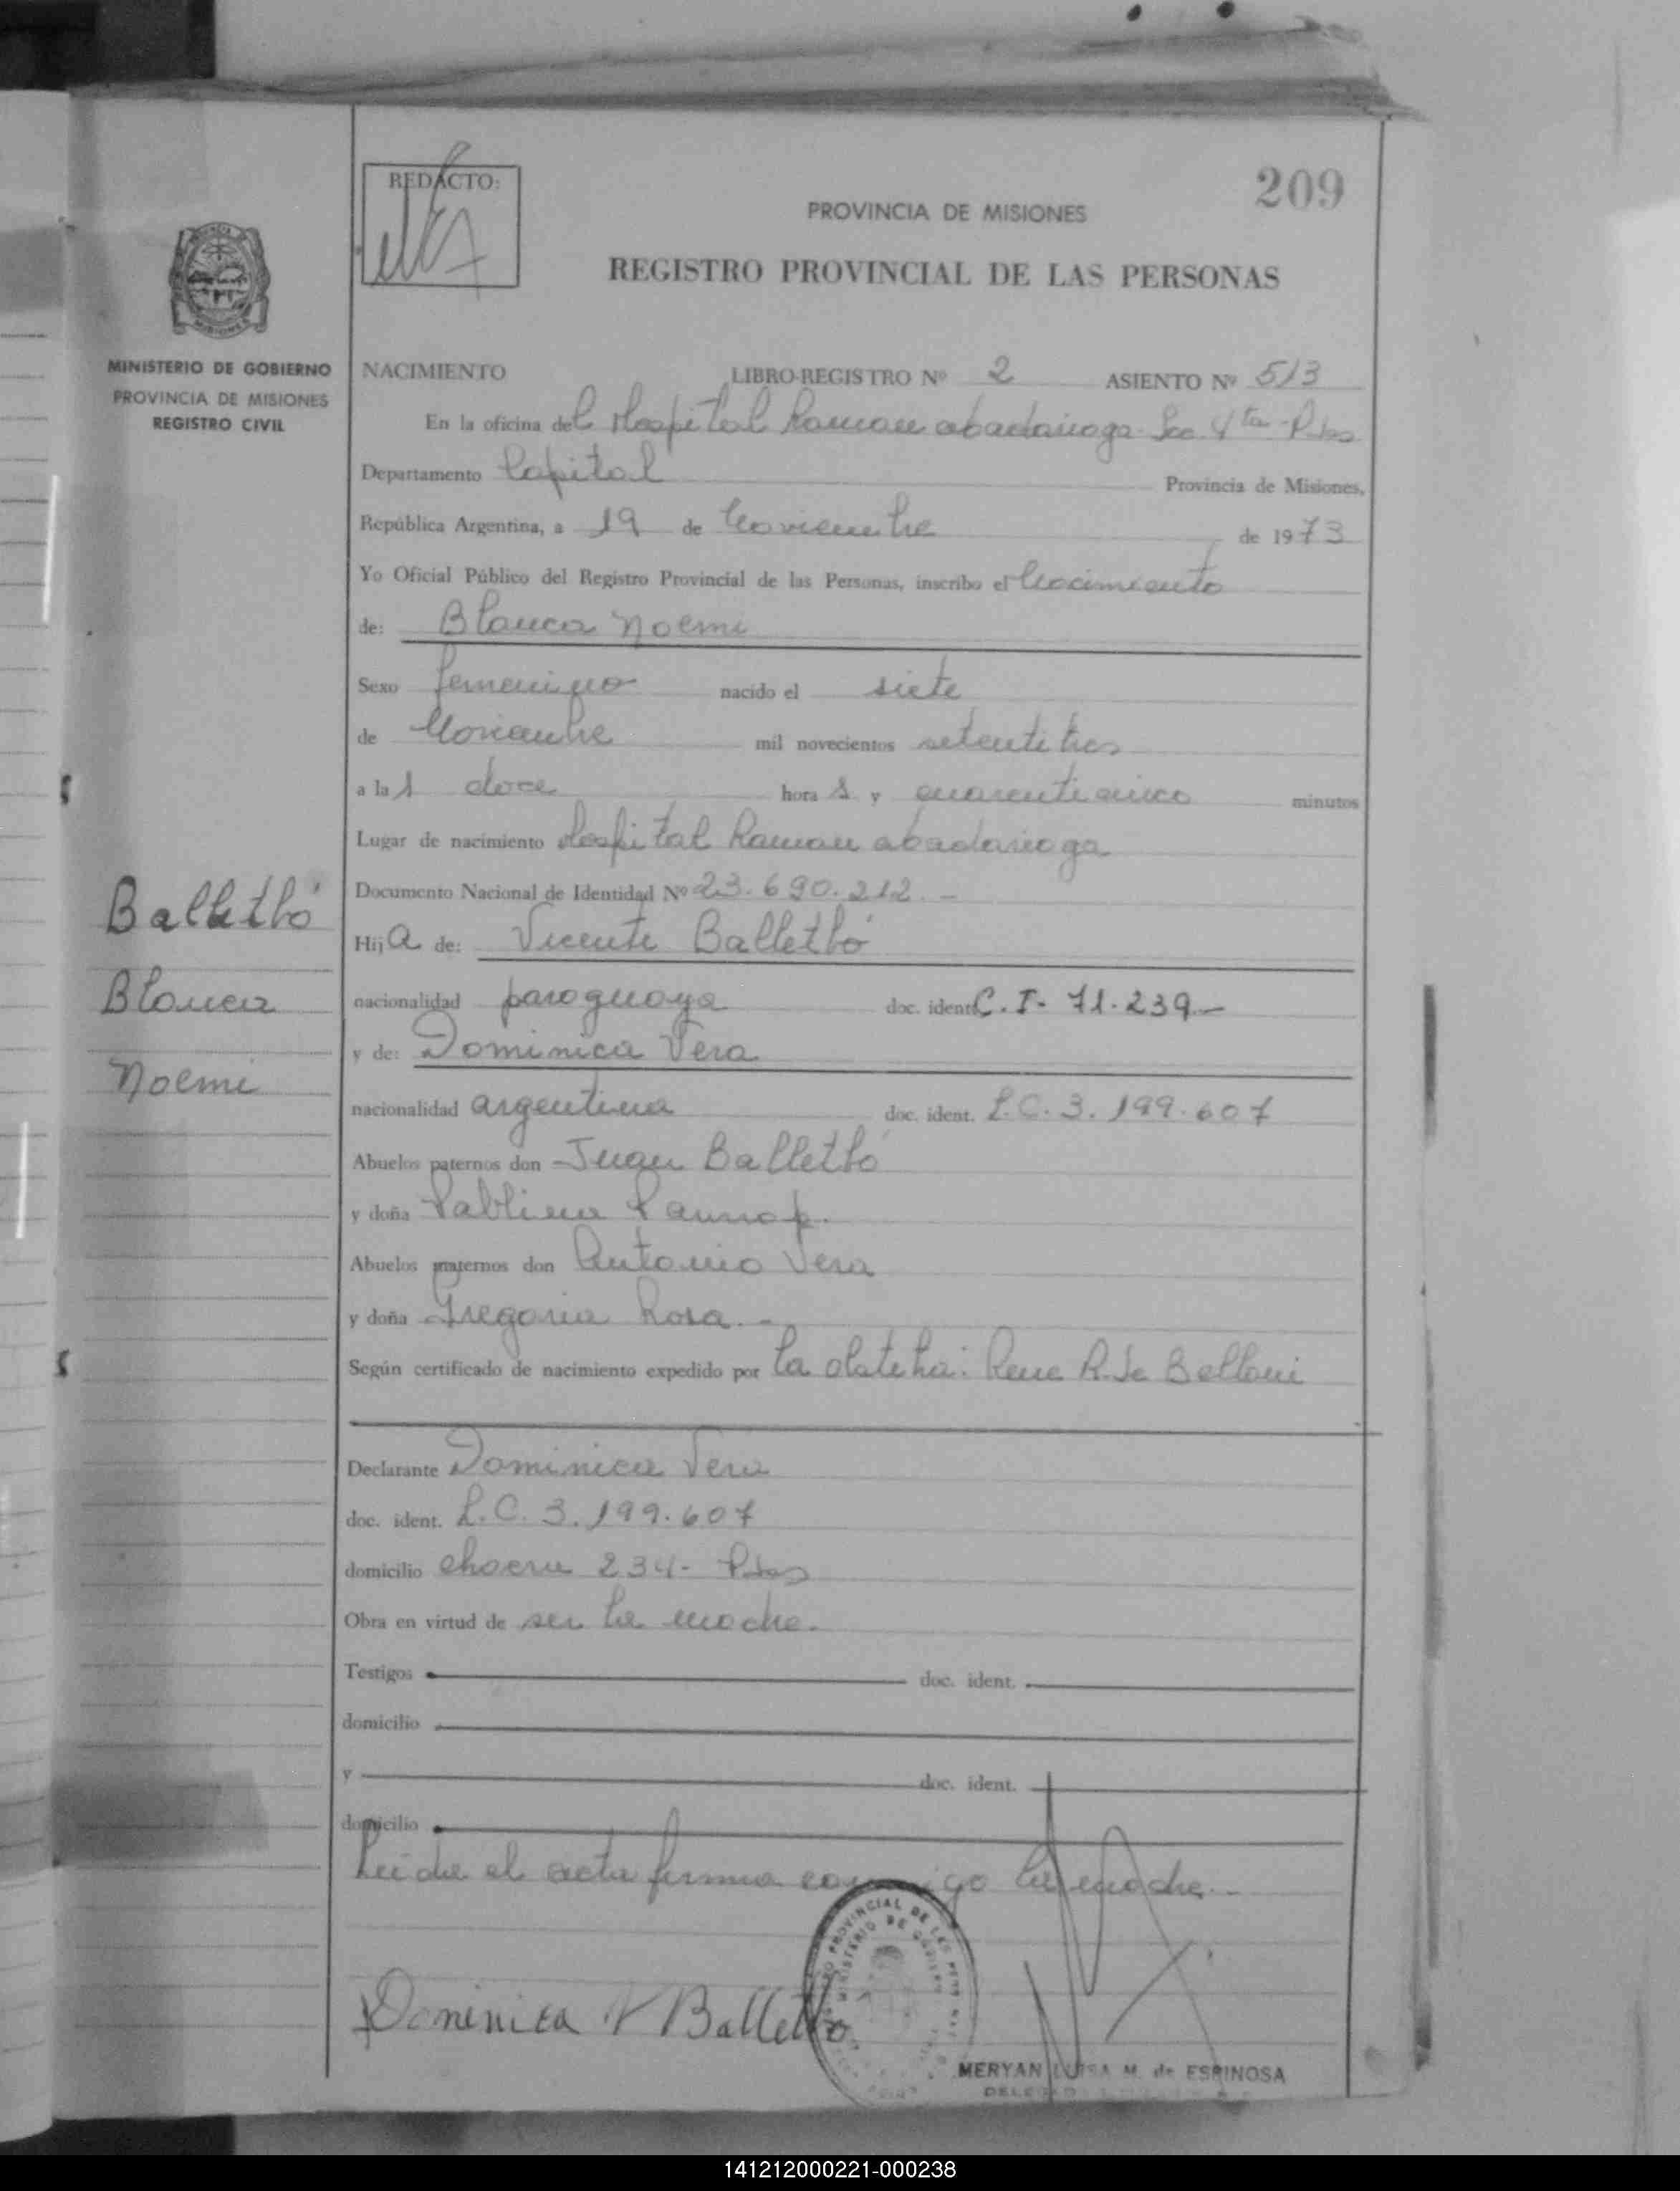 REDACTO:
209
PROVINCIA DE MISIONES
REGISTRO PROVINCIAL DE LAS PERSONAS
MINISTERIO DE GOBIERNO
PROVINCIA DE MISIONES
REGISTRO CIVIL
NACIMIENTO LIBRO-REGISTRO Nº 2 ASIENTO Nº 513
En la oficina del Hospital Ramon abadariaga Sec. 4ta - Pdas
Departamento Capital Provincia de Misiones,
República Argentina, a 19 de Noviembre de 1973
Yo Oficial Público del Registro Provincial de las Personas, inscribo el Nacimiento
de: Blanca Noemi
Sexo femenino nacido el siete
de Noviembre mil novecientos setentitres
a las doce horas y cuarenticinco minutos
Lugar de nacimiento Hospital Ramon abadariaga
Documento Nacional de Identidad Nº 23.690.212.-
Balletbó
Blanca
Noemi
Hija de: Vicente Balletbó
nacionalidad paraguaya doc. ident. C.I- 71.239.-
y de: Dominica Vera
nacionalidad argentina doc. ident. L.C. 3.199.607
Abuelos paternos don Juan Balletbó
y doña Pablina
Abuelos maternos don Antonio Vera
y doña Gregoria Rosa.-
Según certificado de nacimiento expedido por la obstetra: Rene R. de Belloni
Declarante Dominica Vera
doc. ident. L.C. 3.199.607
domicilio chacra 234- Pdas
Obra en virtud de ser la madre.
Testigos doc. ident.
domicilio
y doc. ident.
domicilio
Leida el acta firma conmigo la madre.-
Dominica V Balletbo
MERYAN LUISA M. de ESPINOSA
141212000221-000238